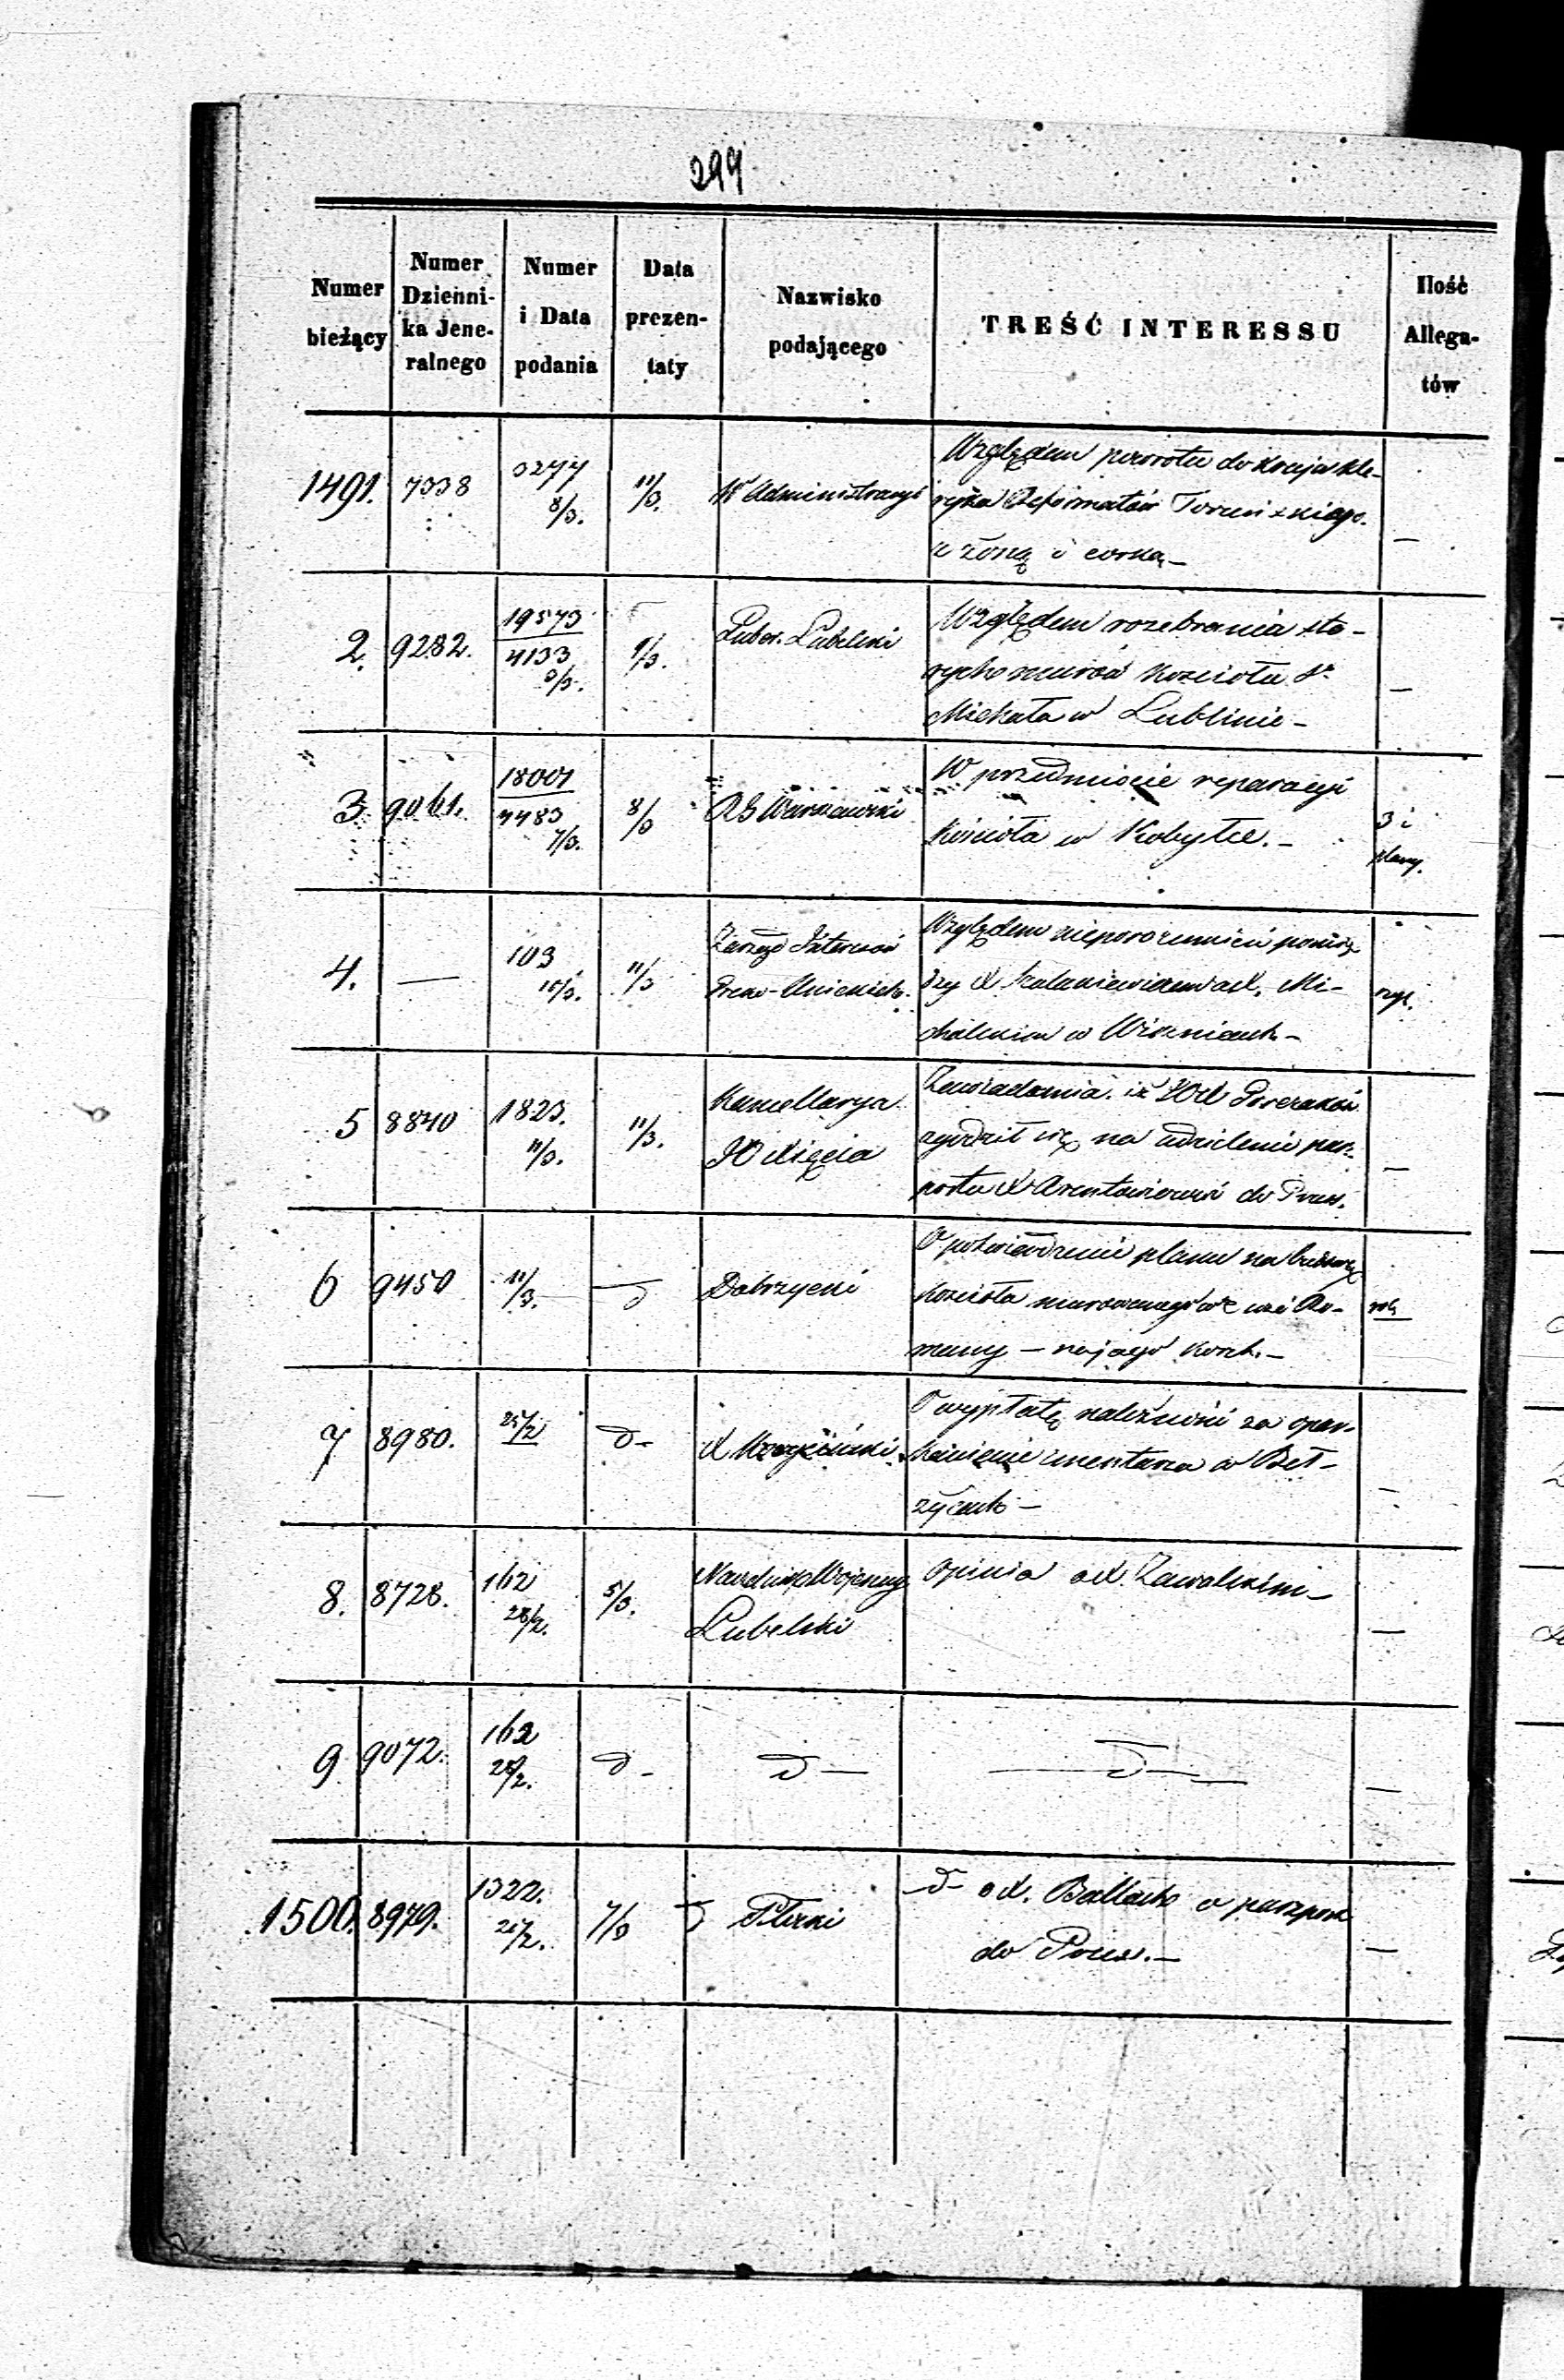 299
Numer bieżący
Numer Dzienni-ka Jene-ralnego
Numer i Data podania
Data prezen-taty
Nazwisko podającego
TREŚĆ INTERESSU
Ilość Allega-tów
1491. 7338 3277 8/3. 11/3. Administracyi Względem powrotu do Kraju Kle-
ryka Reformatów Toruńskiego
z żoną i corką —
2. 9282. 19573 4133 9/3. Guber. Lubelski Względem rozebrania sta-
rych murów Kościoła Sº
Michała w Lublinie —
3 9061. 18001 4483 7/3. 8/3 RG Warszawski W przedmiocie reparacyi
Kościoła w Kobyłce. — 3 i
plany.
4. — 103 10/3. 11/3 Zarząd Interesów
Greko-Unickich. Względem nieporozumień pomię-
dzy X w X. Mi-
w Wisznicach —
5 8840 1823. 11/3. 11/3. Kancellarya
JO Xięcia Zawiadamia, iż
zgodził się na udzielenie pas-
portu X do Pruss. —
6 9450 11/3. — d Dobrzycki O potwierdzenie planu na budowę
Kościoła murowanego we wsi Ro-
many —
7 8980. 25/2 d — X O wypłatę należności za opar-
kanienie cmentarza w Beł-
życach — —
8. 8728. 162 28/2. 5/3. Naczelnik Wojenny
Lubelski Opinia o X. —
9 9072. 162 28/2. d — d — — d — —
1500. 8979. 1322. 25/2. 7/3 d — d — o X. o paszport
do Prus. — —